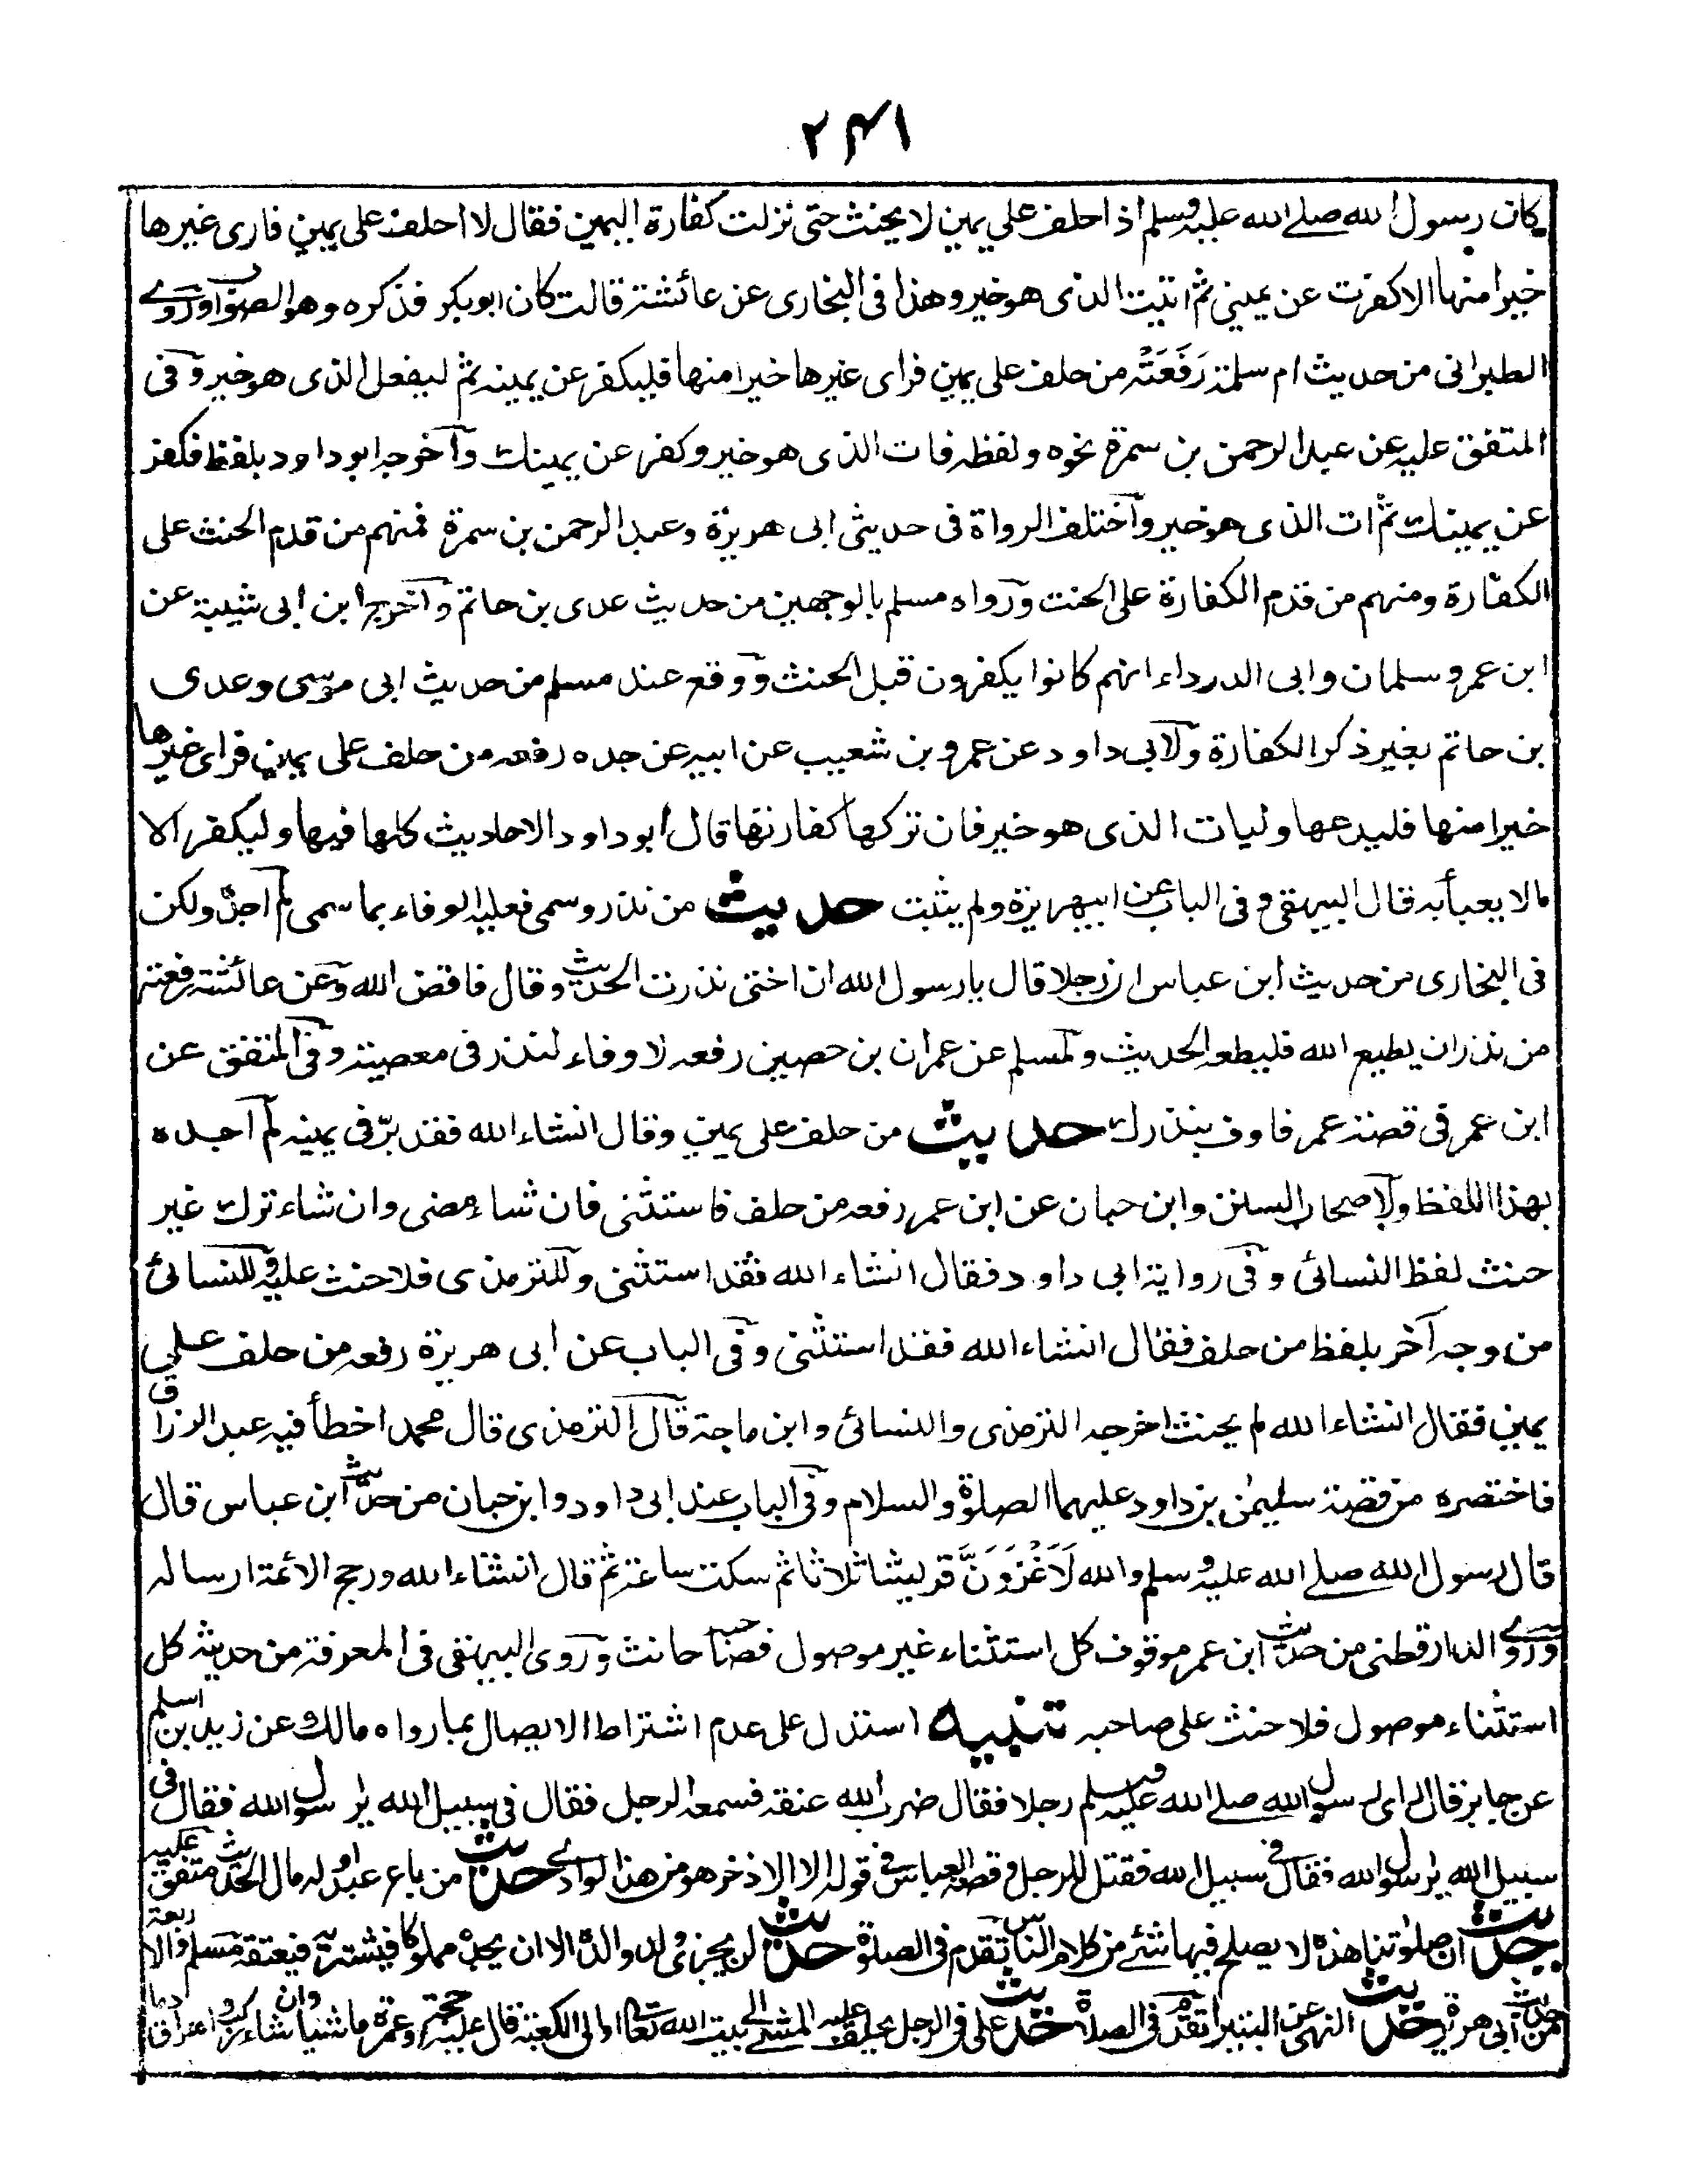 ٢٤١
كان رسول الله صلے الله علیہ وسلم اذا حلف علی یمین لا یحنث حتی نزلت كفارة الیمین فقال لا احلف علی یمین فاری غیرها
خیرا منها الا كفرت عن یمینی ثم اتیت الذی هو خیر وهذا فی البخاری عن عائشة قالت كان ابو بكر فذكره وهو الصواب وروے
الطبرانی من حدیث ام سلمة رَفَعَتْہ من حلف علی یمین فرای غیرها خیرا منها فلیكفر عن یمینہ ثم لیفعل الذی هو خیر وفی
المتفق علیہ عن عبد الرحمن بن سمرة نحوه ولفظہ فات الذی هو خیر وكفر عن یمینك وأخرجہ ابو داود بلفظ فكفر
عن یمینك ثم ات الذی هو خیر واختلف الرواة فی حدیثی ابی هریرة وعبد الرحمن بن سمرة فمنهم من قدم الحنث علی
الكفارة ومنهم من قدم الكفارة علی الحنث ورواه مسلم بالوجهین من حدیث عدی بن حاتم واخرج ابن ابی شیبة عن
ابن عمر وسلمان وابی الدرداء انهم كانوا یكفرون قبل الحنث ووقع عند مسلم من حدیث ابی موسی وعدی
بن حاتم بغیر ذكر الكفارة ولابی داود عن عمرو بن شعیب عن ابیہ عن جده رفعہ من حلف علی یمین فرای غیرها
خیرا منها فلیدعها ولیات الذی هو خیر فان تركها كفارتها قال ابو داود الاحادیث كلها فیها ولیكفر الا
ما لا یعبأ بہ قال البیهقی وفی الباب عن ابی هریرة ولم یثبت حدیث من نذر وسمی فعلیہ الوفاء بما سمی لم اجدہ ولكن
فی البخاری من حدیث ابن عباس ان رجلا قال یا رسول الله ان اختی نذرت الحدیث وقال فاقض الله وعن عائشة رفعتہ
من نذر ان یطیع الله فلیطعہ الحدیث ولمسلم عن عمران بن حصین رفعہ لا وفاء لنذر فی معصیة وفی المتفق عن
ابن عمر فی قصة عمر فاوف بنذرك حدیث من حلف علی یمین وقال انشاء الله فقد برّ فی یمینہ لم اجده
بهذا اللفظ ولاصحاب السنن وابن حبان عن ابن عمر رفعہ من حلف فاستثنی فان شاء مضی وان شاء ترك غیر
حنث لفظ النسائی وفی روایة ابی داود فقال انشاء الله فقد استثنی وللترمذی فلا حنث علیہ وللنسائی
من وجہ آخر بلفظ من حلف فقال انشاء الله فقد استثنی وفی الباب عن ابی هریرة رفعہ من حلف علی
یمین فقال انشاء الله لم یحنث اخرجہ الترمذی والنسائی وابن ماجة قال الترمذی قال محمد اخطأ فیہ عبد الرزاق
فاختصره من قصة سلیمٰن بن داود علیهما الصلوٰة والسلام وفی الباب عند ابی داود وابن حبان من حدیث ابن عباس قال
قال رسول الله صلے الله علیہ وسلم والله لَاَغْزُوَنَّ قریشا ثلاثا ثم سكت ساعة ثم قال انشاء الله ورجح الائمة ارسالہ
وروے الدارقطنی من حدیث ابن عمر موقوف كل استثناء غیر موصول فصاحبہ حانث وروی البیهقی فی المعرفة من حدیثہ كل
استثناء موصول فلا حنث علی صاحبہ تنبیہ استدل علی عدم اشتراط الاتصال بما رواه مالك عن زید بن اسلم
عن جابر قال رای رسول الله صلے الله علیہ وسلم رجلا فقال ضرب الله عنقہ فسمعہ الرجل فقال فی سبیل الله یا رسول الله فقال فی
سبیل الله یا رسول الله فقال فی سبیل الله فقتل الرجل وقصة العباس فی قولہ الا الاذخر هو من هذا الوادے حدیث من باع عبدا ولہ مال الحدیث متفق علیہ
حدیث ان صلوٰتنا هذه لا یصلح فیها شئے من كلام الناس تقدم فی الصلوة حدیث لن یجزی ولد والدہ الا ان یجدہ مملوكا فیشتریہ فیعتقہ مسلم والاربعة
من حدیث ابی هریرة حدیث النهی عن البتیراء تقدم فی الصلاة حدیث علی فی الرجل یحلف علیہ المشے الی بیت الله تعالی او الی الكعبة قال علیہ حجة او عمرة ماشیا وان شاء ركب واهراق دما